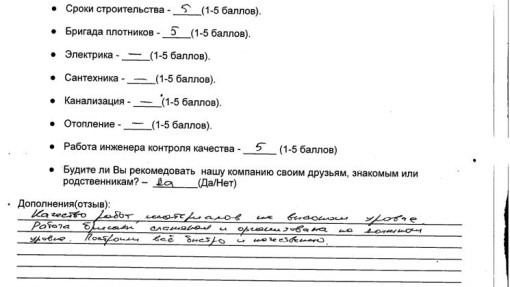 • Сроки строительства - 5 (1-5 баллов).
• Бригада плотников - 5 (1-5 баллов).
• Электрика - — (1-5 баллов).
• Сантехника - — (1-5 баллов).
• Канализация - — (1-5 баллов).
• Отопление - — (1-5 баллов).
• Работа инженера контроля качества - 5 (1-5 баллов)
• Будите ли Вы рекомедовать нашу компанию своим друзьям, знакомым или
родственникам? – да (Да/Нет)
Дополнения(отзыв):
Качество работ, материалов на высоком уровне.
Работа бригады слаженная и организована на должном
уровне. Построили всё быстро и качественно.